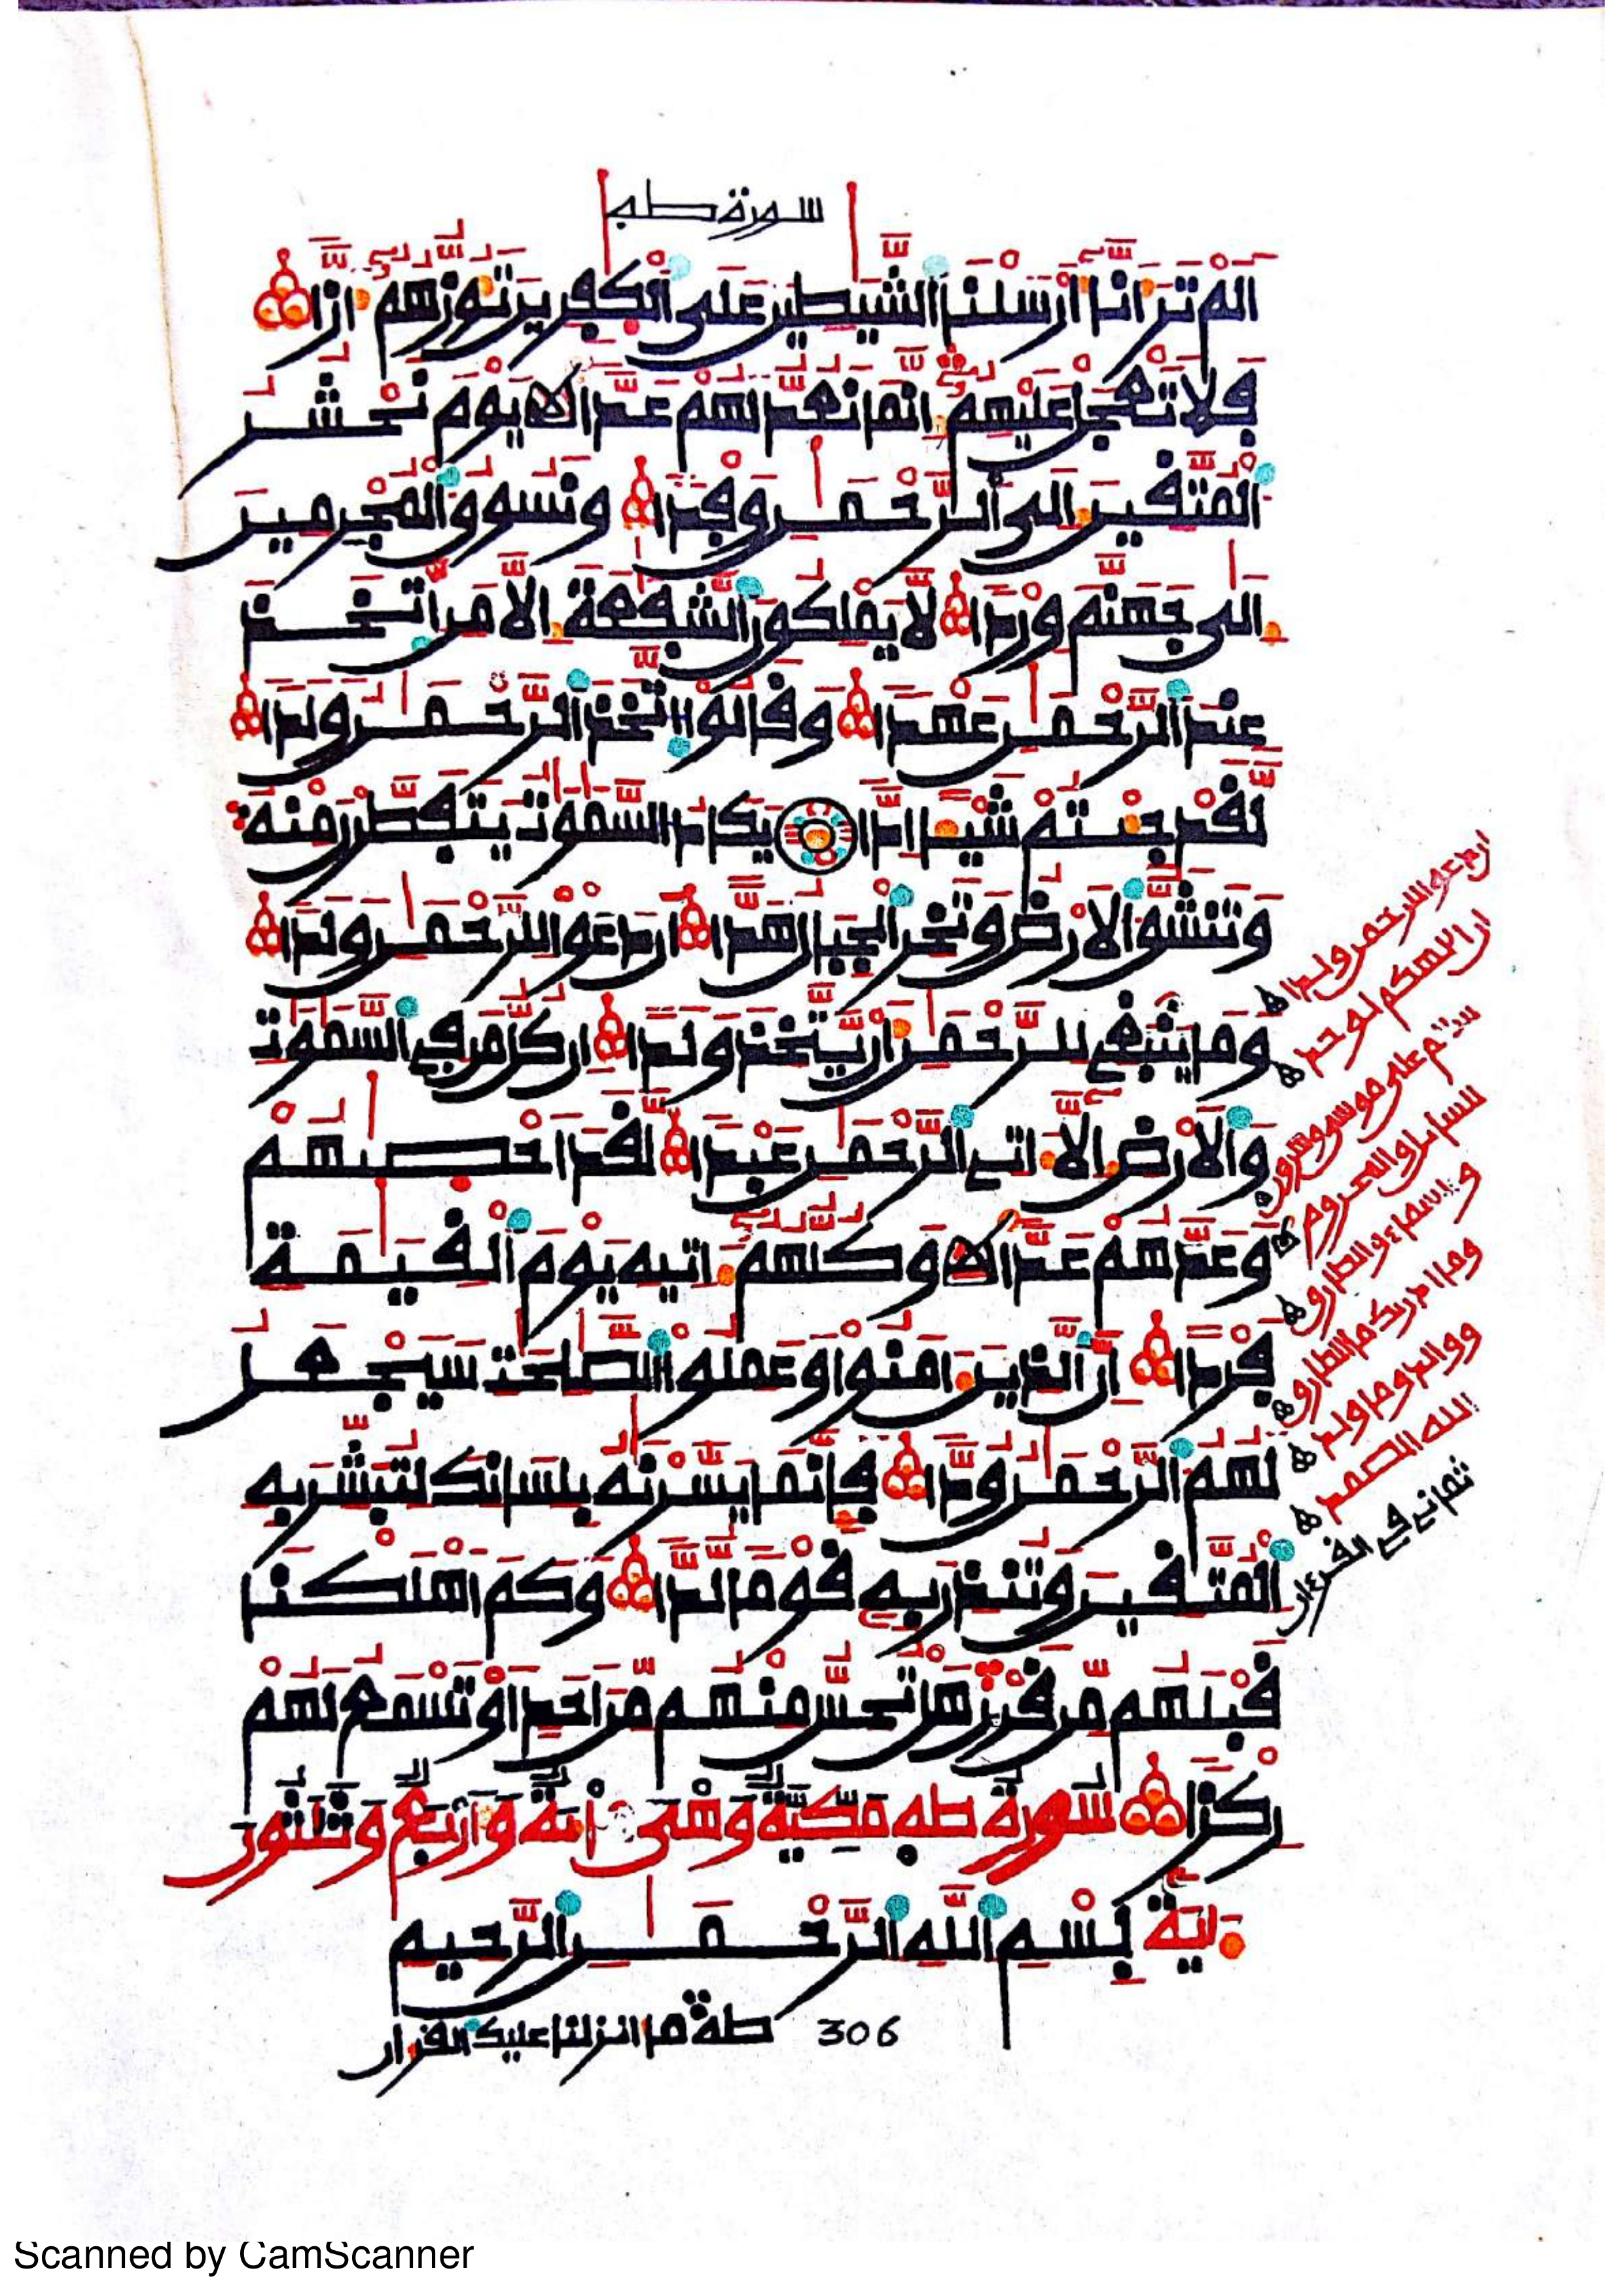 سورة طه
الم تر انا ارسلنا الشيطين على الكفرين توزهم ازا
فلا تعجل عليهم انما نعد لهم عدا يوم نحشر
المتقين الى الرحمن وفدا ونسوق المجرمين
الى جهنم وردا لا يملكون الشفعة الا من اتخذ
عند الرحمن عهدا وقالوا اتخذ الرحمن ولدا
لقد جئتم شيا ادا يكاد السموت يتفطرن منه
وتنشق الارض وتخر الجبال هدا ان دعوا للرحمن ولدا
وما ينبغي للرحمن ان يتخذ ولدا ان كل من في السموت
والارض الا اتي الرحمن عبدا لقد احصيهم
وعدهم عدا وكلهم اتيه يوم القيمة
فردا ان الذين امنوا وعملوا الصلحت سيجعل
لهم الرحمن ودا فانما يسرنه بلسانك لتبشر به
المتقين وتنذر به قوما لدا وكم اهلكنا
قبلهم من قرن هل تحس منهم من احد او تسمع لهم
ركزا سورة طه مكية وهي ماية واربع وثلثون
اية بسم الله الرحمن الرحيم
306 طه ما انزلنا عليك القران
ان دعوا للرحمن ولدا
ان الهكم لوحد
سلم على موسى وهرون
للسايل والمحروم
والسماء والطارق
وما ادريك ما الطارق
ووالد وما ولد
الله الصمد
ثماني في القرءان
Scanned by CamScanner